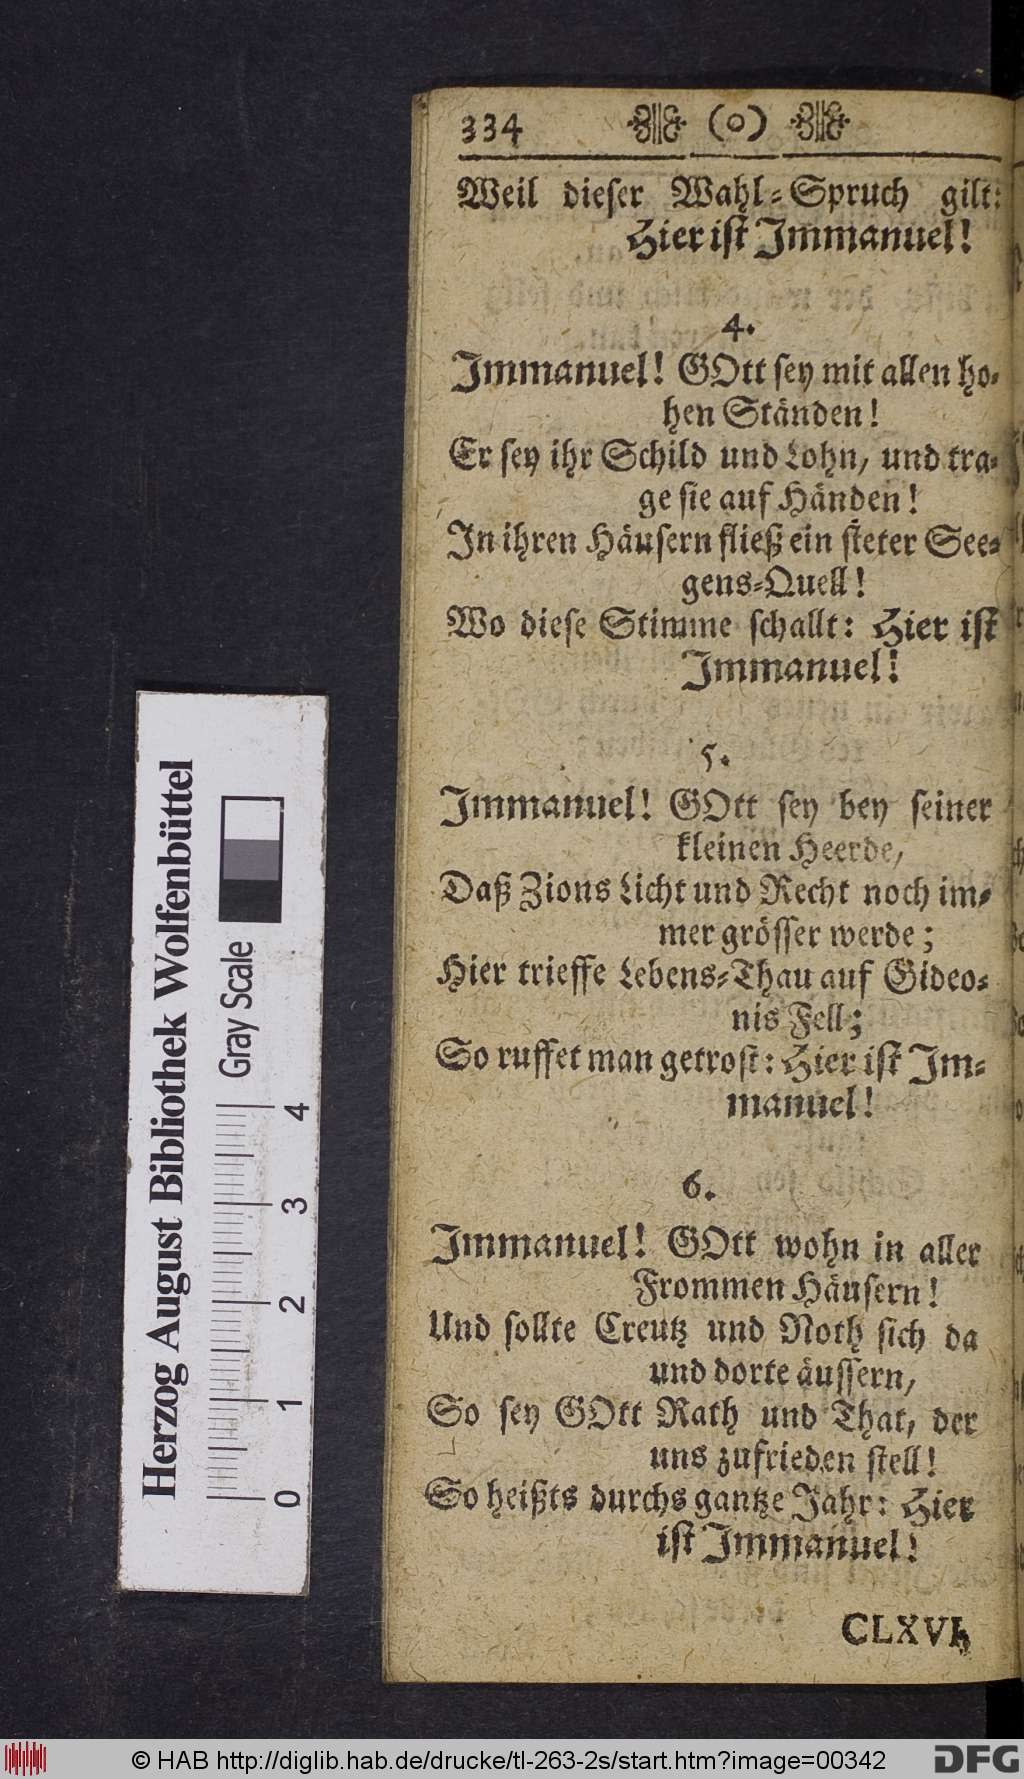 334 (o)
Weil dieser Wahl-Spruch gilt:
Hier ist Immanuel!
4.
Immanuel! GOtt sey mit allen ho-
hen Ständen!
Er sey ihr Schild und Lohn, und tra-
ge sie auf Händen!
In ihren Häusern fließ ein steter See-
gens-Quell!
Wo diese Stimme schallt: Hier ist
Immanuel!
5.
Immanuel! GOtt sey bey seiner
kleinen Heerde,
Daß Zions Licht und Recht noch im-
mer grösser werde;
Hier trieffe Lebens-Thau auf Gideo-
nis Fell;
So ruffet man getrost: Hier ist Im-
manuel!
6.
Immanuel! GOtt wohn in aller
Frommen Häusern!
Und sollte Creutz und Noth sich da
und dorte äussern,
So sey GOtt Rath und That, der
uns zufrieden stell!
So heißts durchs gantze Jahr: Hier
ist Immanuel!
CLXVI,
Herzog August Bibliothek Wolfenbüttel
Gray Scale
0 1 2 3 4
© HAB http://diglib.hab.de/drucke/tl-263-2s/start.htm?image=00342
DFG